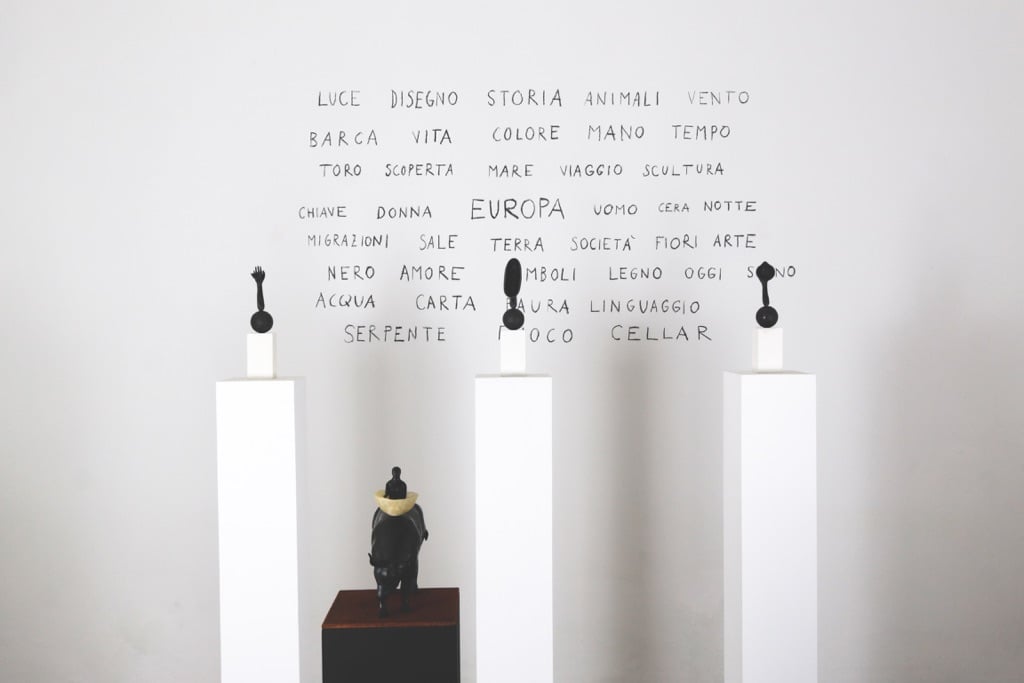 LUCE DISEGNO STORIA ANIMALI VENTO
BARCA VITA COLORE MANO TEMPO
TORO SCOPERTA MARE VIAGGIO SCULTURA
CHIAVE DONNA EUROPA UOMO CERA NOTTE
MIGRAZIONI SALE TERRA SOCIETÀ FIORI ARTE
NERO AMORE LEGNO OGGI
ACQUA CARTA LINGUAGGIO
SERPENTE CELLAR